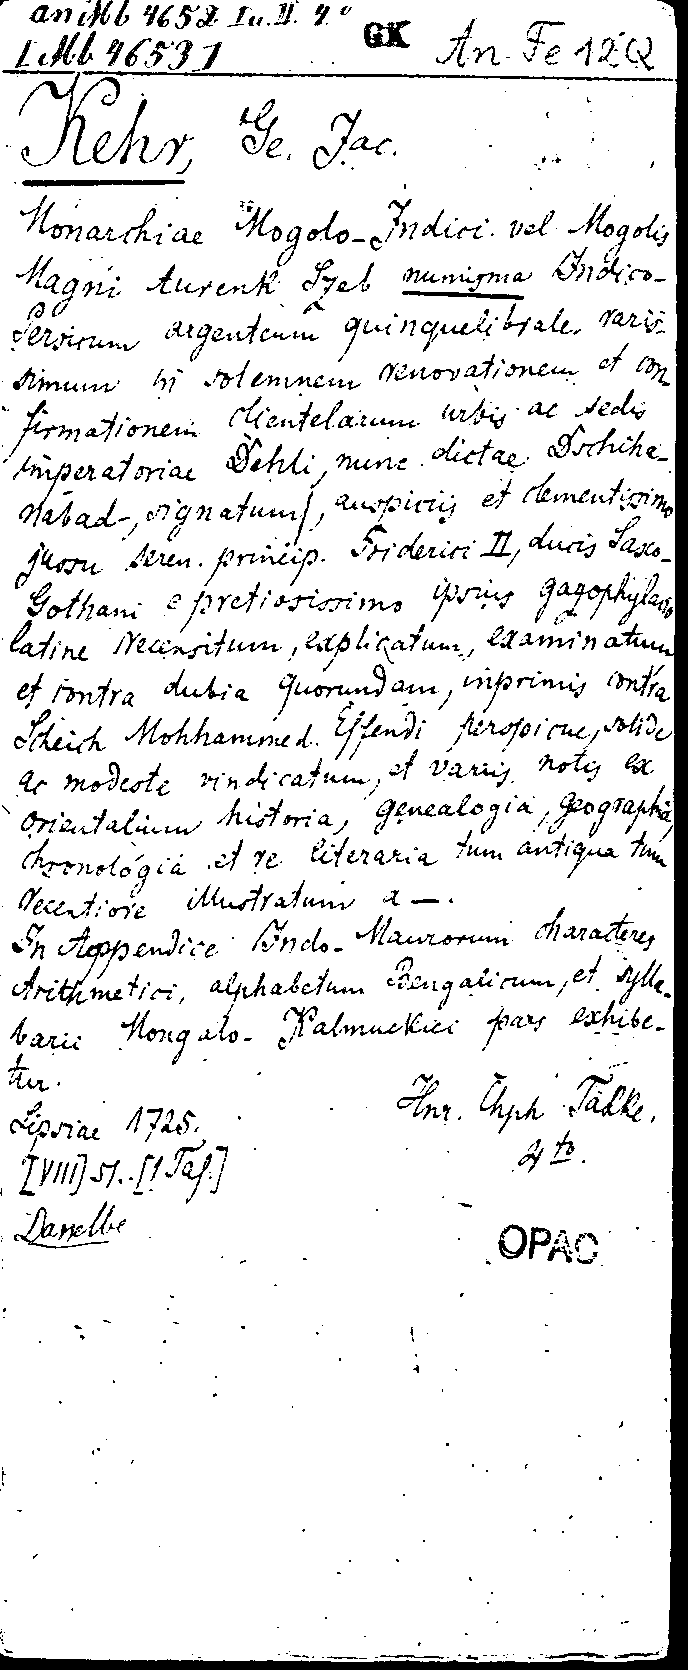 an Mb 4652 I u. II. 4°
I Mb 4653 1
GK
An Fe 12Q
Kehr, Ge. Jac.
Monarchiae Mogolo-Indici vel Mogolis
Magni Aurenk Szeb numisma Indico-
Persicum argenteum quinquelibrale, raris-
simum in solemnem renovationem et con
firmationem clientelarum urbis ac sedis
imperatoriae Dehli, nunc dictae Dschiha-
nabad-, signatum, auspiciis et clementissimo
jussu seren. princip. Friderici II, ducis Saxo-
Gothani e pretiosissimo ipsius gazophylacio
latine recensitum, explicatum, examinatum
et contra dubia quorundam, inprimis contra
Scheich Mohhammed Effendi perspicue, solide
ac modeste vindicatum, et variis notis ex
orientalium historia, genealogia, geographia,
chronologia et re literaria tum antiqua tum
recentiore illustratum a —.
In Appendice Indo-Maurorum characteres
Arithmetici, alphabetum Bengalicum, et sylla-
barii Mongalo-Kalmuckici pars exhibe-
tur.
Lipsiae 1725. Hnr. Chph Takke.
[VIII] 51. [1 Taf.] 4to.
Dasselbe
OPAC